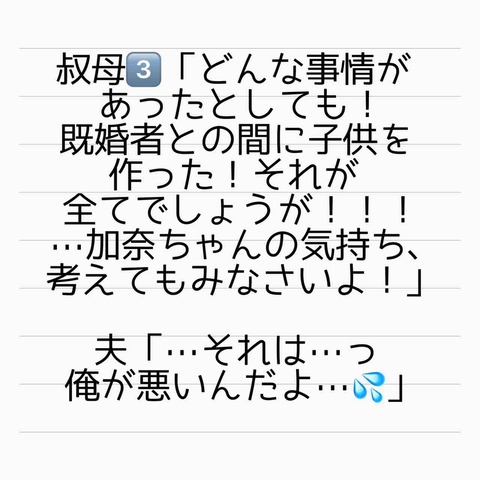 叔母3️⃣「どんな事情が
あったとしても！
既婚者との間に子供を
作った！それが
全てでしょうが！！！
…加奈ちゃんの気持ち、
考えてもみなさいよ！」
夫「…それは…っ
俺が悪いんだよ…💦」